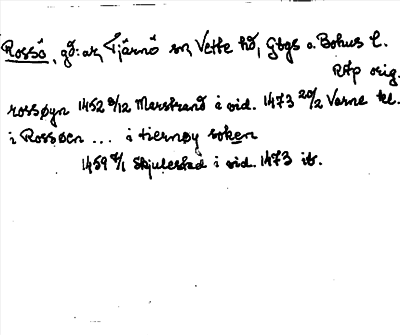 Rossö, gd: ar, Tjärnö sn, Vette hd, Gbgs o. Bohus l.
RAp orig.
rossøyn 1452 9/12 Marstrand i vid. 1473 20/2 Varne kl.
i Rossøen ... i tiernøy soken
1459 8/1 Skjulestad i vid. 1473 ib.